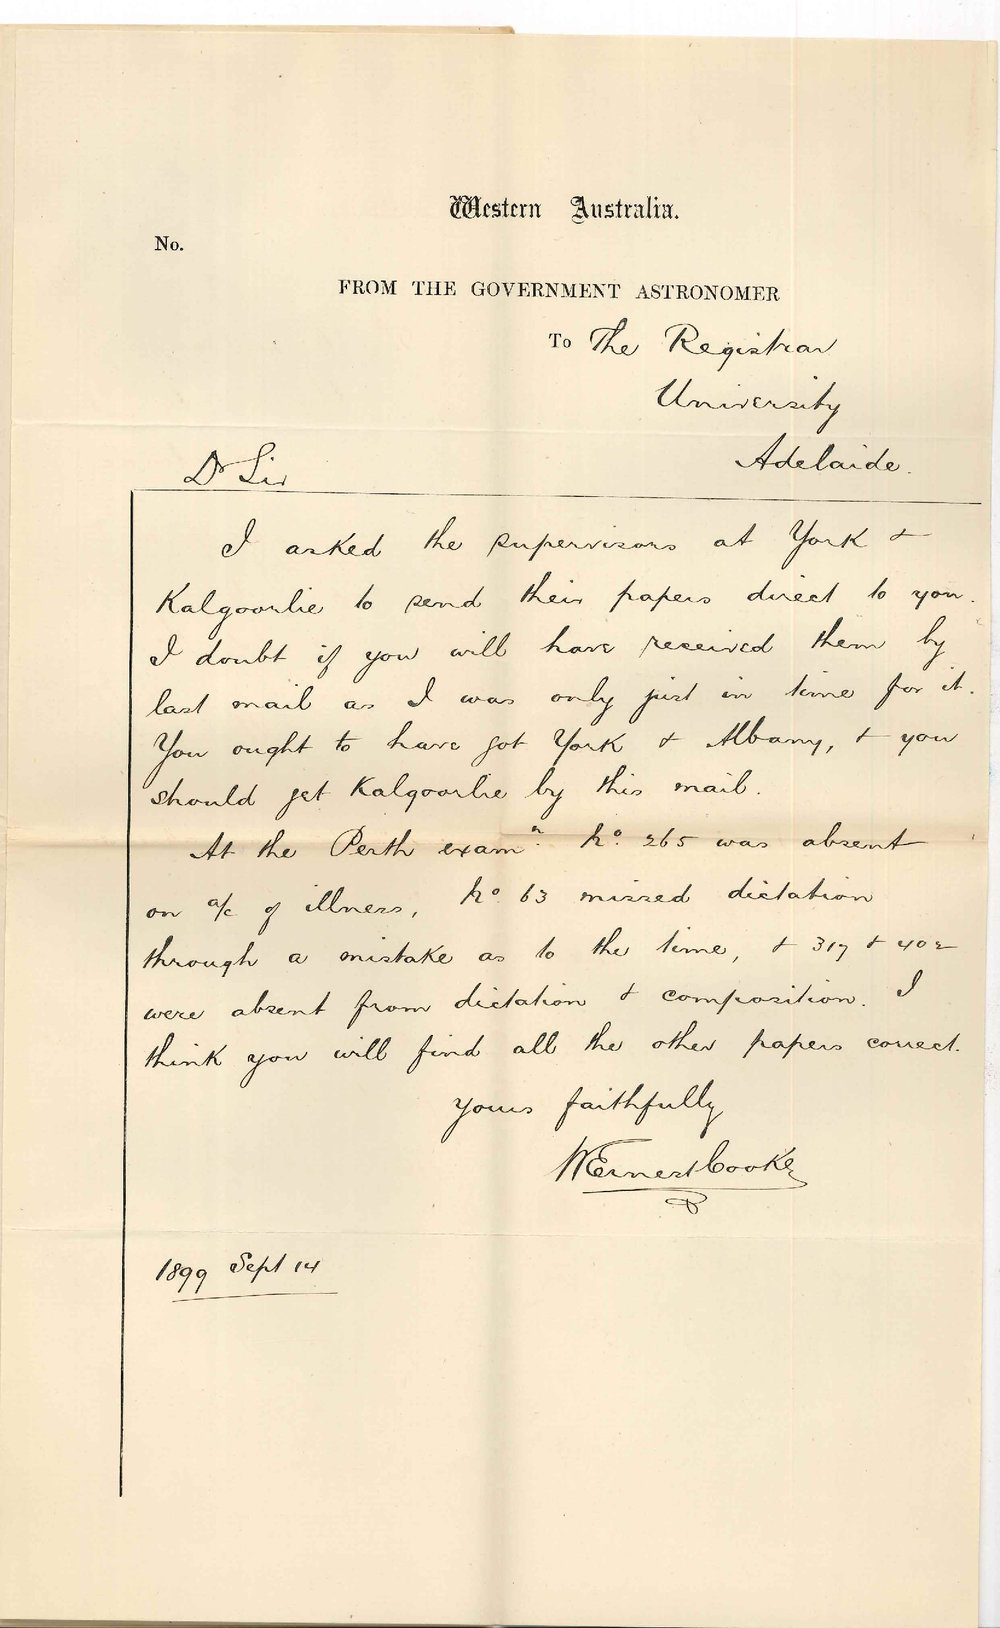 Western Australia.
No.
FROM THE GOVERNMENT ASTRONOMER
To The Registrar
University
Adelaide.
Dr Sir
I asked the supervisors at York &
Kalgoorlie to send their papers direct to you.
I doubt if you will have received them by
last mail as I was only just in time for it.
You ought to have got York & Albany, & you
should get Kalgoorlie by this mail.
At the Perth examn. No. 265 was absent
on a/c of illness, No. 63 missed dictation
through a mistake as to the time, & 317 & 402
were absent from dictation & composition. I
think you will find all the other papers correct.
Yours faithfully
W Ernest Cooke
1899 Sept 14